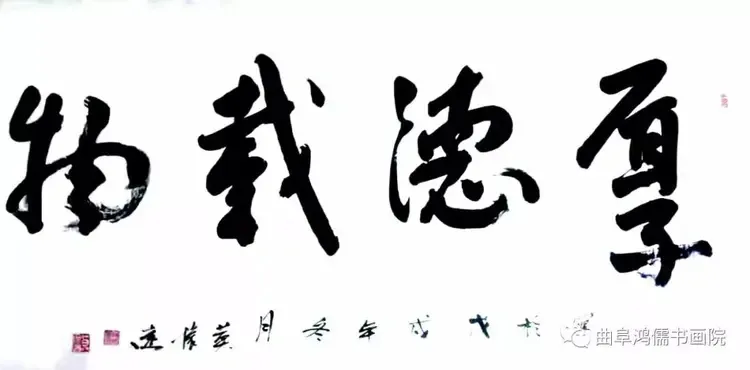 厚德载物
于戊戌年冬月
曲阜鸿儒书画院